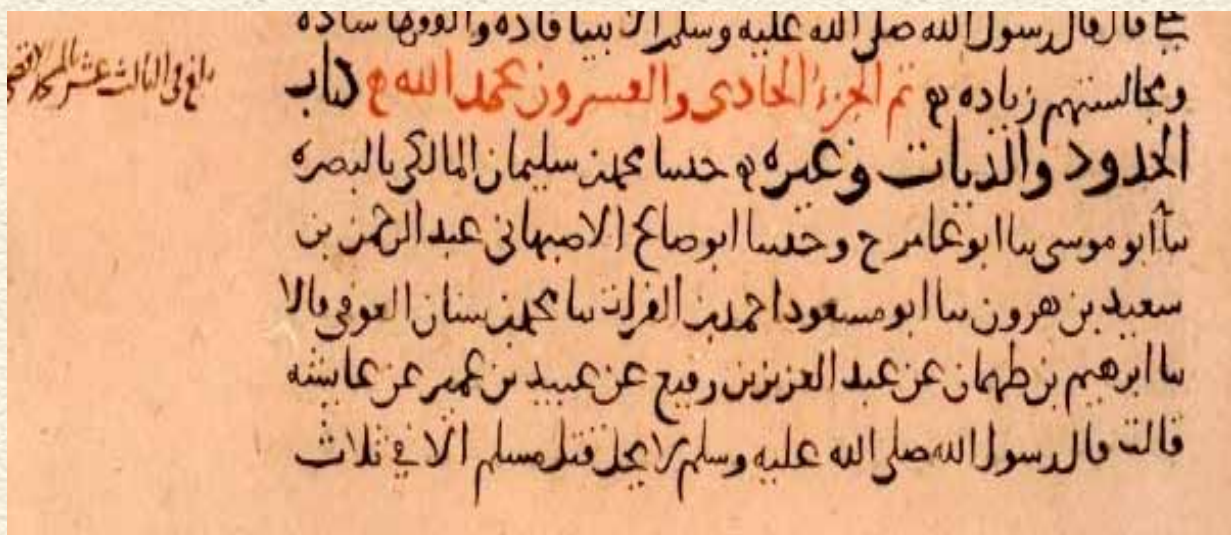 قال قال رسول الله صلى الله عليه وسلم الانبيا قاده والفقها ساده
ومجالستهم زياده تم الجزء الحادى والعشرون بحمد الله كتاب
الحدود والديات وغيره حدثنا محمد بن سليمان المالكي بالبصره
نا أبو موسى نا ابو عامر ح وحدثنا ابو صالح الاصبهانى عبد الرحمن بن
سعيد بن هرون نا ابو مسعود احمد بن الفرات نا محمد بن سنان العوقى قالا
نا ابرهيم بن طهمان عن عبد العزيز بن رفيع عن عبيد بن عمير عن عايشه
قالت قال رسول الله صلى الله عليه وسلم لا يحل قتل مسلم الا في ثلاث
بلغ في الثالث عشر